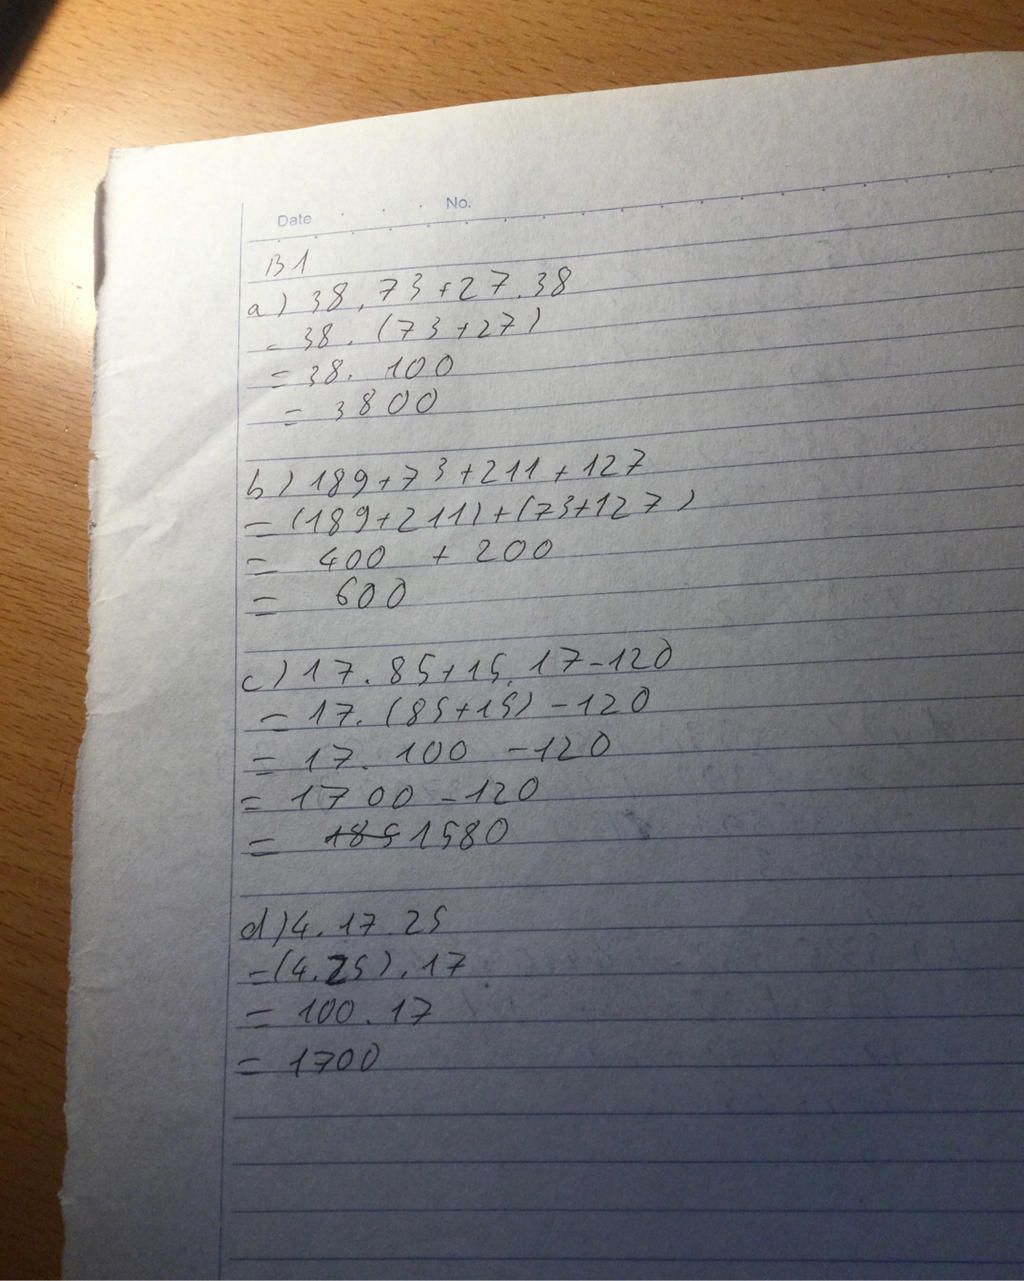 Date No.
B1
a) 38.73+27.38
= 38.(73+27)
= 38. 100
= 3800
b) 189+73+211+127
= (189+211)+(73+127)
= 400 + 200
= 600
c) 17.85+15.17-120
= 17.(85+15) -120
= 17. 100 -120
= 1700 -120
= 185 1580
d) 4.17.25
=(4.25).17
= 100.17
= 1700